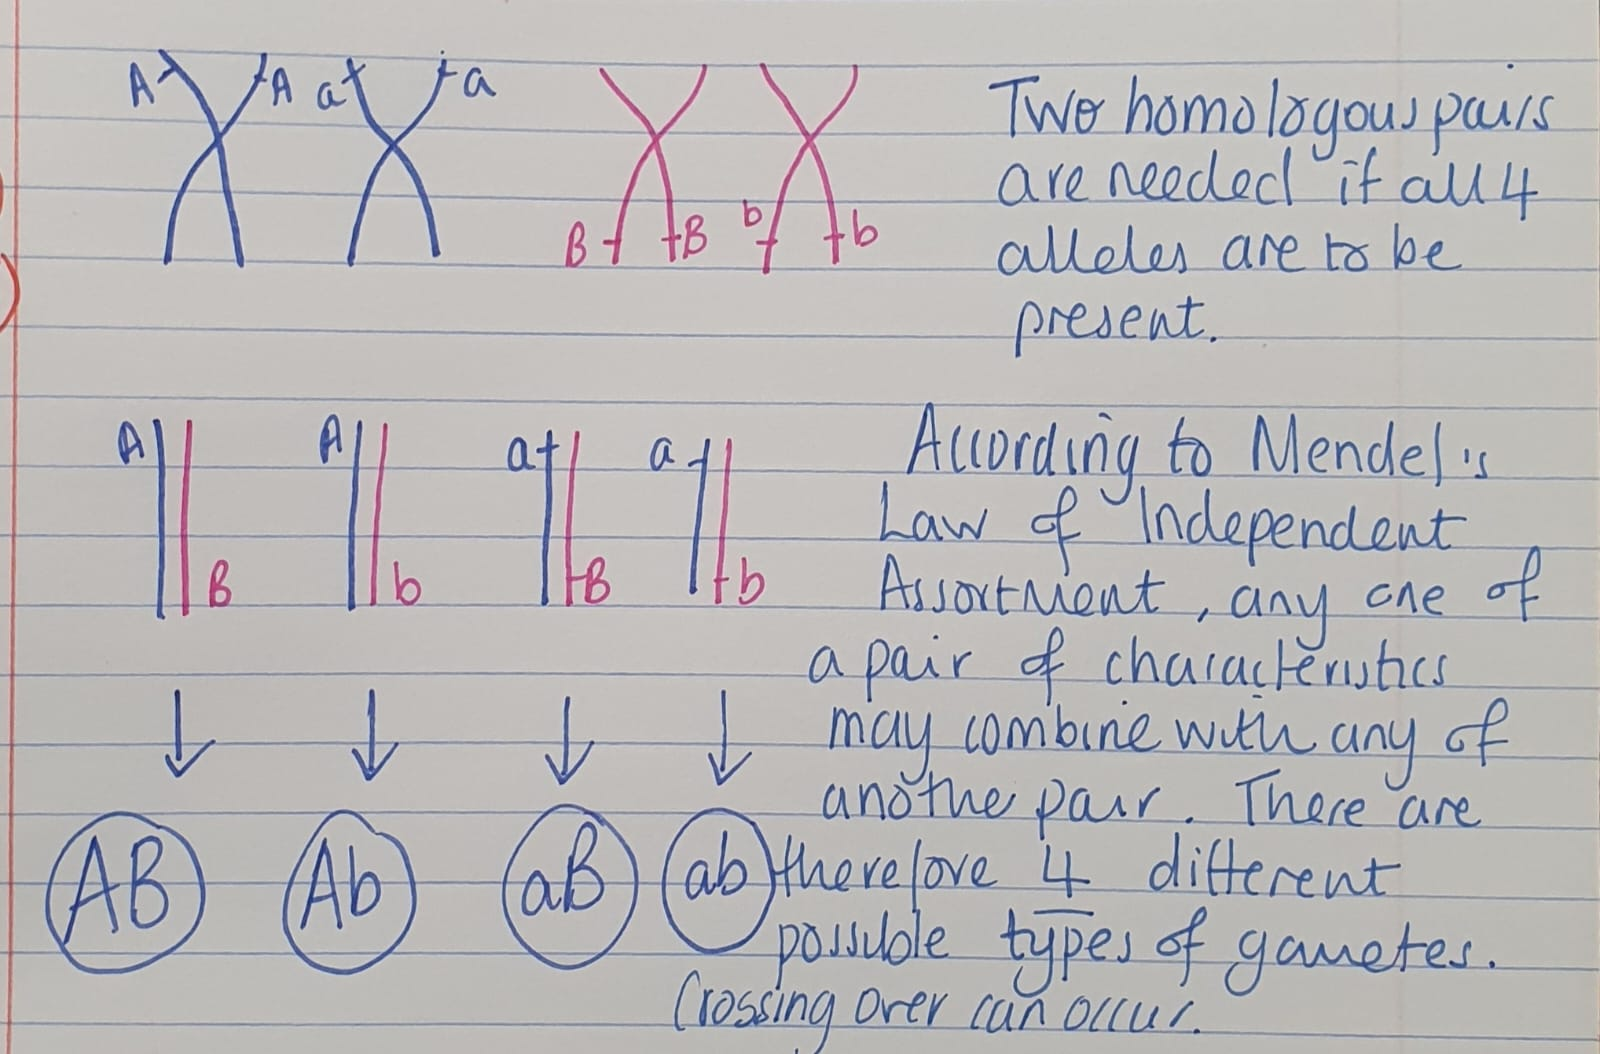 A A a a
Two homologous pairs
are needed if all 4
B B b b
alleles are to be
present.
A A a a
According to Mendel's
Law of Independent
B b B b
Assortment, any one of
a pair of characteristics
may combine with any of
anothe pair. There are
AB Ab aB ab
therefore 4 different
possible types of gametes.
Crossing over can occur.